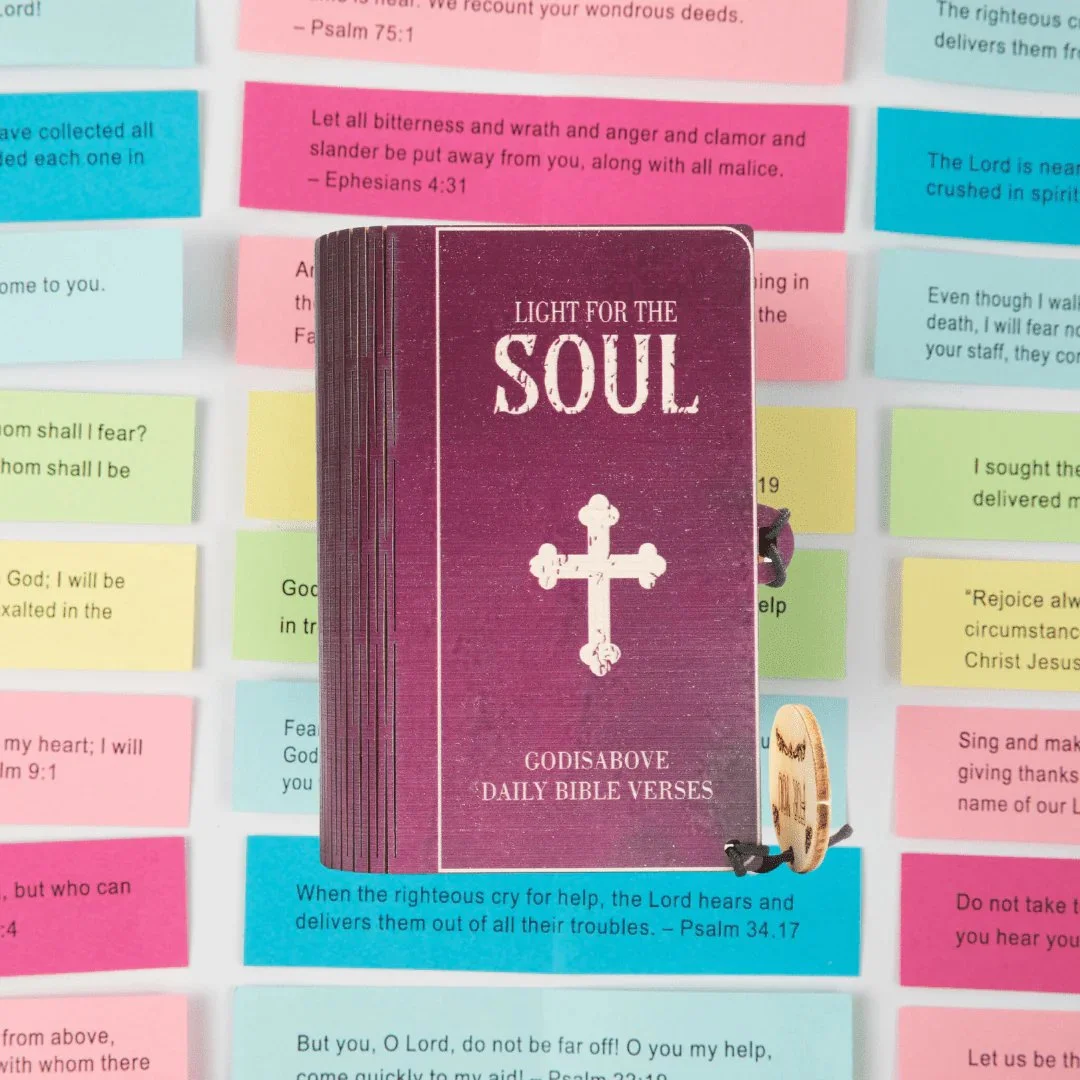 ord!
We recount your wondrous deeds.
– Psalm 75:1
The righteous
delivers them
ave collected all
each one in
Let all bitterness and wrath and anger and clamor and
slander be put away from you, along with all malice.
– Ephesians 4:31
The Lord is near
crushed in spirit
ome to you.
ing in
the
Even though I wal
death, I will fear no
your staff, they com
om shall I fear?
hom shall I be
19
I sought the
delivered m
God; I will be
xalted in the
God
in tr
elp
"Rejoice alw
circumstanc
Christ Jesus
my heart; I will
lm 9:1
Fea
God
you
Sing and mak
giving thanks
name of our L
, but who can
:4
When the righteous cry for help, the Lord hears and
delivers them out of all their troubles. – Psalm 34.17
Do not take t
you hear you
from above,
with whom there
But you, O Lord, do not be far off! O you my help,
come quickly to my aid! – Psalm 22:19
Let us be th
LIGHT FOR THE
SOUL
GODISABOVE
DAILY BIBLE VERSES